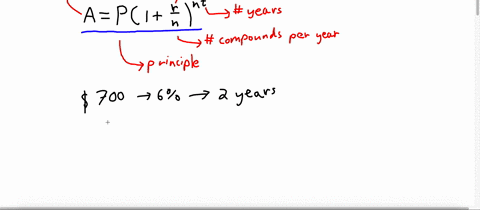 A = P(1 + r/n)^nt → # years
→ # compounds per year
→ principle
$ 700 → 6% → 2 years